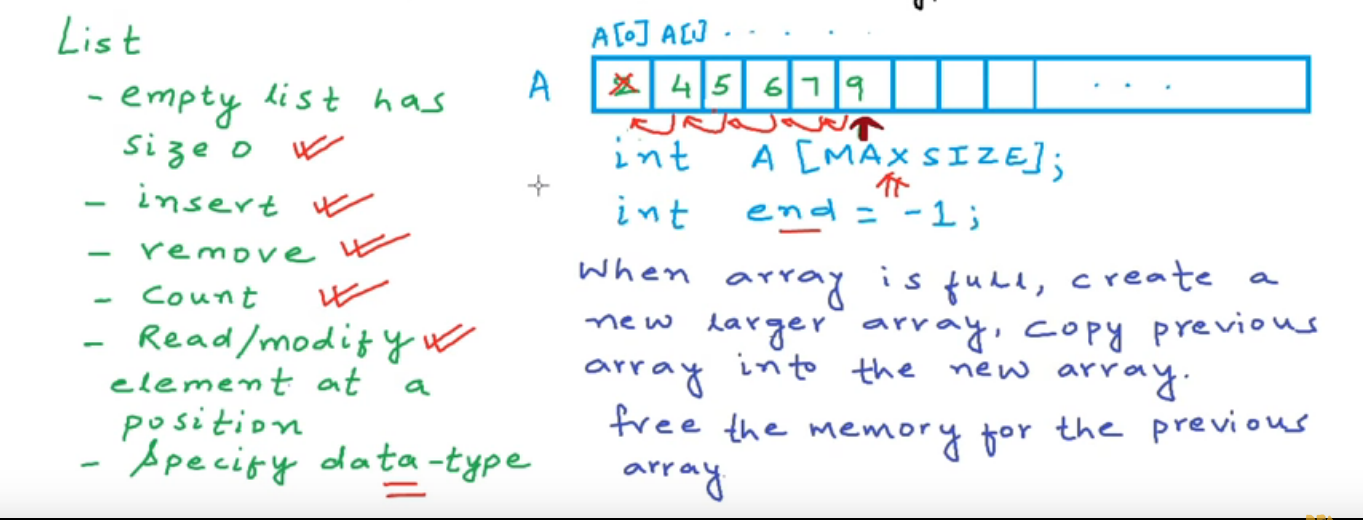 List
- empty list has
size 0
- insert
- remove
- Count
- Read/modify
element at a
position
- Specify data-type
A[0] A[1] . . . .
A 2 4 5 6 7 9 . . .
int A [MAXSIZE];
int end = -1;
When array is full, create a
new larger array, copy previous
array into the new array.
free the memory for the previous
array